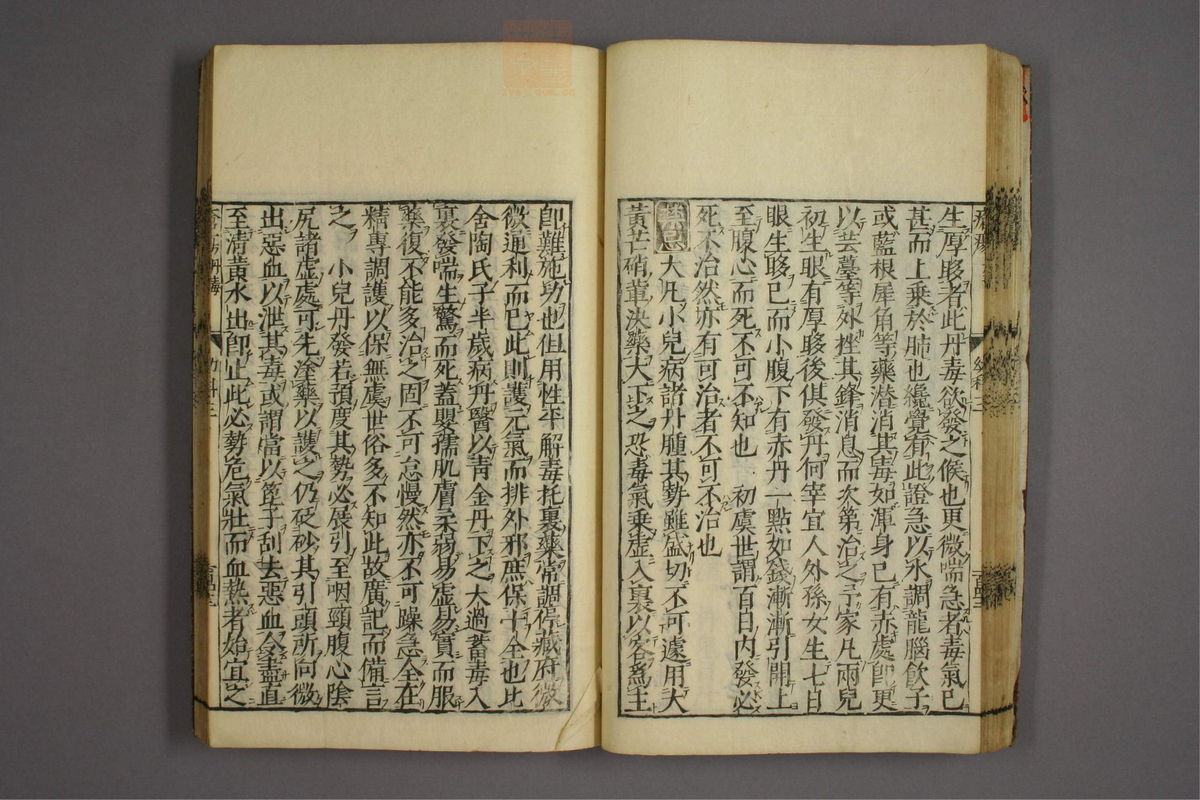 生厚眵者此丹毒欲發之候也更微喘急者毒氣已
甚而上乗於肺也纔覺有此證急以水調龍腦飲子
或藍根犀角等藥潜消其毒如渾身已有赤處卽更
以芸薹等外挫其鋒消息而次第治之予家凡兩兒
初生眼有厚眵後俱發丹何宰宜人外孫女生七日
眼生眵已而小腹下有赤丹一點如錢漸漸引開上
至腹心而死不可不知也 初虞世謂百日内發必
死不治然亦有可治者不可不治也
大凡小兒病諸丹腫其勢雖盛切不可遽用大
黃芒硝軰决藥大下之恐毒氣乗虚入裏以客爲主
卽難施功也但用性平解毒托裏藥常調停藏府微
微通利而已此則護元氣而排外邪庶保十全也比
舍陶氏子半歲病丹醫以靑金丹下之大過蓄毒入
裏發喘生驚而死蓋嬰孺肌膚柔弱易虚易實而服
藥復不能多治之固不可怠慢然亦不可躁急全在
精專調護以保無虞世俗多不知此故廣記而備言
之 小兒丹發若預度其勢必展引至咽頸腹心陰
尻諸虚處可先塗藥以護之仍砭砂其引頭所向微
出惡血以泄其毒或謂當以箆子刮去惡血令盡直
至淸黃水出卽止此必勢危氣壯而血熱者始宜之